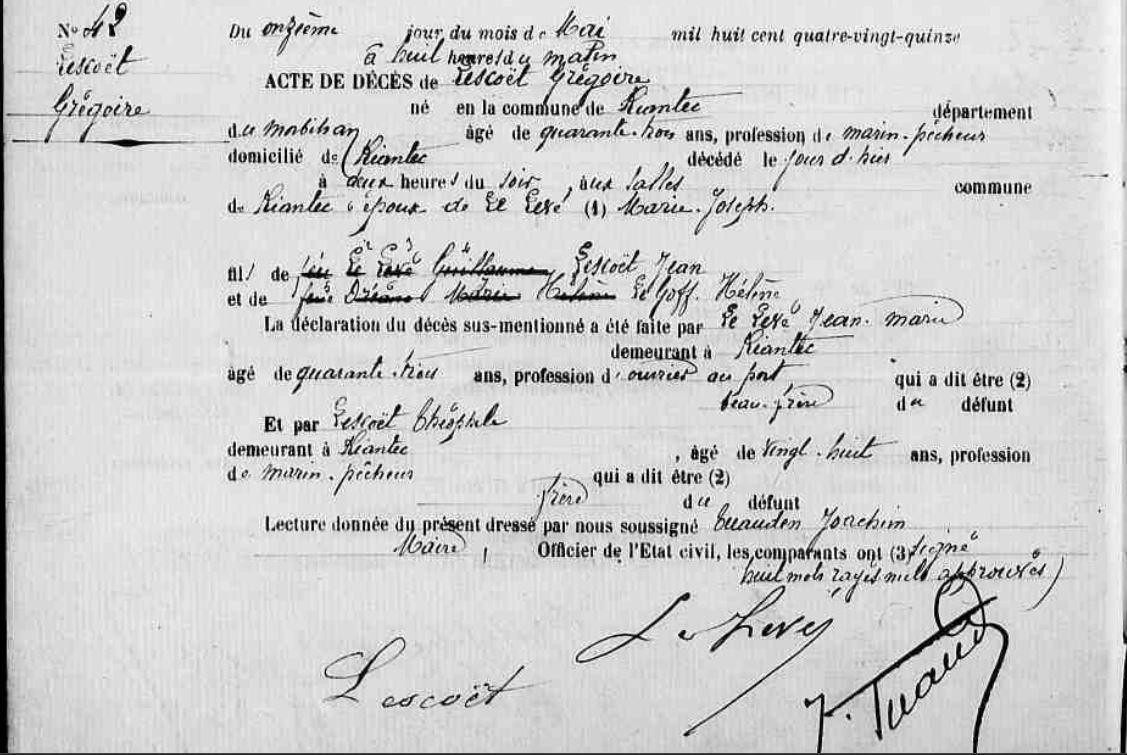 N° 42
Lescoët
Grégoire
Du onzième jour du mois de Mai mil huit cent quatre-vingt-quinze
à huit heures du matin
ACTE DE DÉCÈS de Lescoët Grégoire
né en la commune de Riantec département
du morbihan âgé de quarante-trois ans, profession de marin-pêcheur
domicilié de Riantec décédé le jour d'hier
à deux heures du soir, aux Salles commune
de Riantec époux de Le Levé (1) Marie-Joseph.
fils de feu Le Levé Guillaume Lescoët Jean
et de feue Dréano Marie Hélène Le Goff Hélène
La déclaration du décès sus-mentionné a été faite par Le Levé Jean-marie
demeurant à Riantec
âgé de quarante-trois ans, profession d'ouvrier au port qui a dit être (2)
beau-frère du défunt
Et par Lescoët Théophile
demeurant à Riantec, âgé de vingt-huit ans, profession
de marin-pêcheur qui a dit être (2)
frère du défunt
Lecture donnée du présent dressé par nous soussigné Tuauden Joachim
Maire, Officier de l'Etat civil, les comparants ont (3) signé
huit mots rayés nuls approuvés)
Le Levé
Lescoët
J. Tuaud